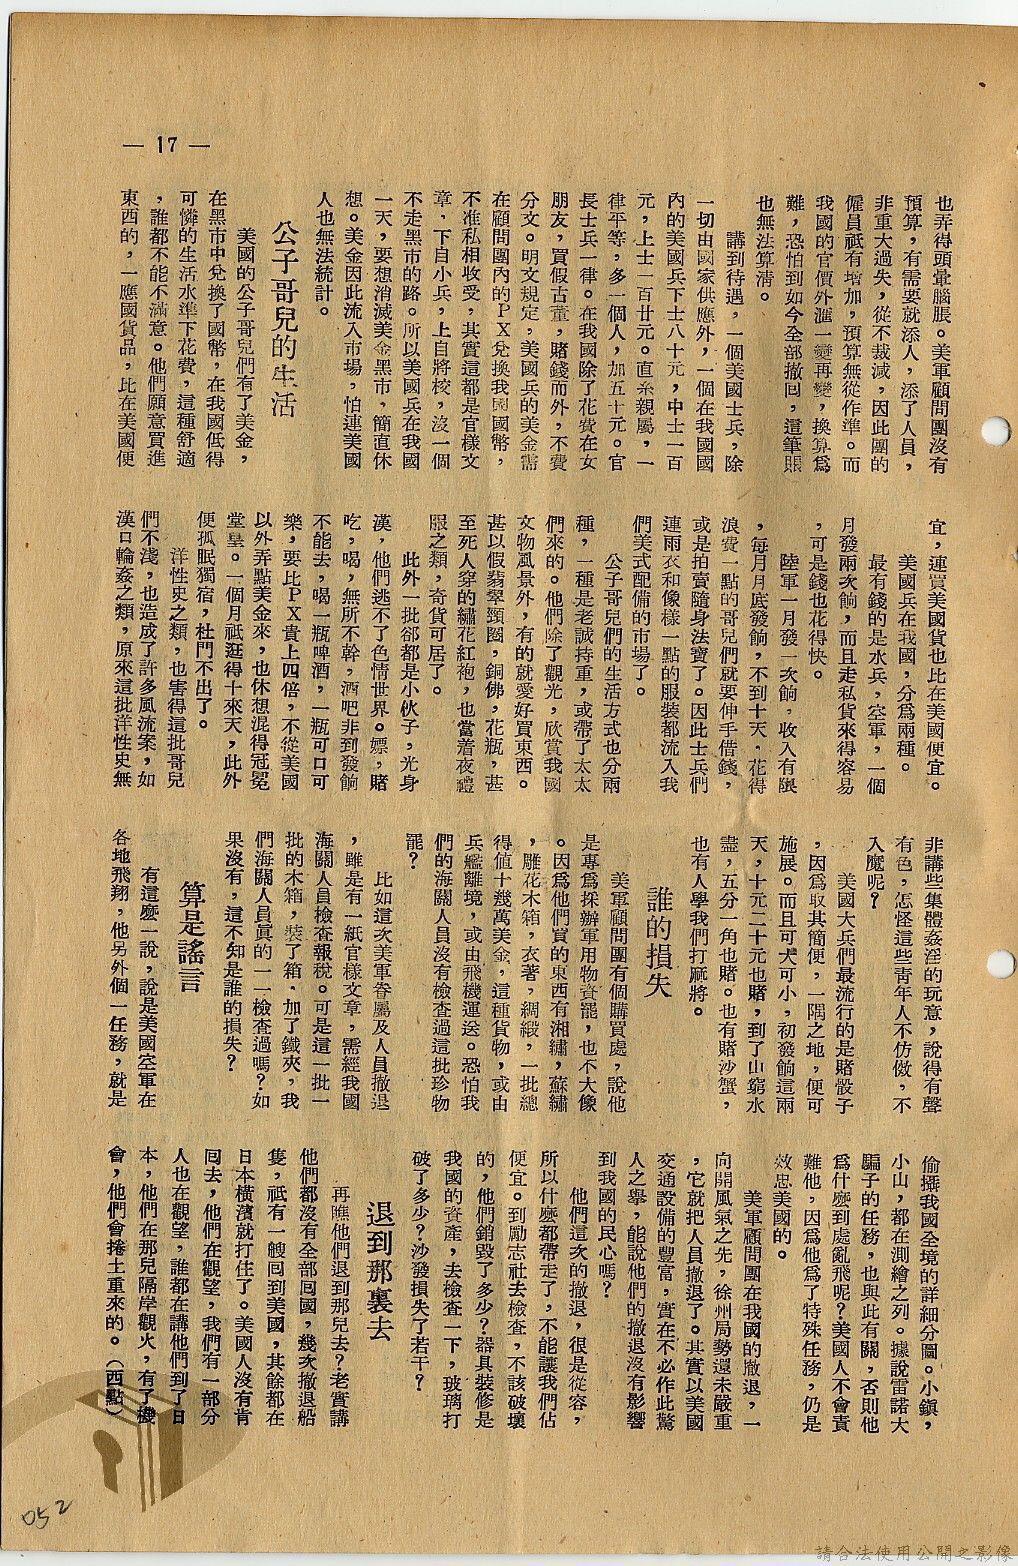 — 17 —
也弄得頭暈腦脹。美軍顧問團沒有
預算,有需要就添人,添了人員,
非重大過失,從不裁減,因此團的
僱員祇有增加,預算無從作準。而
我國的官價外滙一變再變,換算爲
難,恐怕到如今全部撤囘,這筆賬
也無法算清。
講到待遇,一個美國士兵,除
一切由國家供應外,一個在我國國
內的美國兵下士八十元,中士一百
元,上士一百廿元。直系親屬,一
律平等,多一個人,加五十元。官
長士兵一律。在我國除了花費在女
朋友,買假古董,賭錢而外,不費
分文。明文規定,美國兵的美金需
在顧問團內的PX兌換我國國幣,
不准私相收受,其實這都是官樣文
章,下自小兵,上自將校,沒一個
不走黑市的路。所以美國兵在我國
一天,要想消滅美金黑市,簡直休
想。美金因此流入市場,怕連美國
人也無法統計。
公子哥兒的生活
美國的公子哥兒們有了美金,
在黑市中兌換了國幣,在我國低得
可憐的生活水準下花費,這種舒適
,誰都不能不滿意。他們願意買進
東西的,一應國貨品,比在美國便
宜,連買美國貨也比在美國便宜。
美國兵在我國,分爲兩種。
最有錢的是水兵,空軍,一個
月發兩次餉,而且走私貨來得容易
,可是錢也花得快。
陸軍一月發一次餉,收入有限
,每月月底發餉,不到十天,花得
浪費一點的哥兒們就要伸手借錢,
或是拍賣隨身法寶了。因此士兵們
連雨衣和像樣一點的服裝都流入我
們美式配備的市場了。
公子哥兒們的生活方式也分兩
種,一種是老誠持重,或帶了太太
們來的。他們除了觀光,欣賞我國
文物風景外,有的就愛好買東西。
甚以假翡翠頸圈,銅佛,花瓶,甚
至死人穿的繡花紅袍,也當着夜禮
服之類,奇貨可居了。
此外一批部都是小伙子,光身
漢,他們逃不了色情世界。嫖,賭
吃,喝,無所不幹,酒吧非到發餉
不能去,喝一瓶啤酒,一瓶可口可
樂,要比PX貴上四倍,不從美國
以外弄點美金來,也休想混得冠冕
堂皇。一個月祇逛得十來天,此外
便孤眠獨宿,杜門不出了。
洋性史之類,也害得這批哥兒
們不淺,也造成了許多風流案,如
漢口輪姦之類,原來這批洋性史無
非講些集體姦淫的玩意,說得有聲
有色,怎怪這些靑年人不仿傚,不
入魔呢?
美國大兵們最流行的是賭骰子
,因爲取其簡便,一隅之地,便可
施展。而且可大可小,初發餉這兩
天,十元二十元也賭,到了山窮水
盡,五分一角也賭。也有賭沙蟹,
也有人學我們打麻將。
誰的損失
美軍顧問團有個購買處,說他
是專爲採辦軍用物資罷,也不大像
。因爲他們買的東西有湘繡,蘇繡
,雕花木箱,衣著,綢緞,一批總
得值十幾萬美金,這種貨物,或由
兵艦離境,或由飛機運送。恐怕我
們的海關人員沒有檢查過這批珍物
罷?
比如這次美軍眷屬及人員撤退
,雖是有一紙官樣文章,需經我國
海關人員檢查報稅。可是這一批一
批的木箱,裝了箱,加了鐵夾,我
們海關人員眞的一一檢查過嗎?如
果沒有,這不知是誰的損失?
算是謠言
有這麼一說,說是美國空軍在
各地飛翔,他另外個一任務,就是
偷攝我國全境的詳細分圖。小鎭,
小山,都在測繪之列。據說雷諾大
騙子的任務,也與此有關,否則他
爲什麼到處亂飛呢?美國人不會責
難他,因爲他爲了特殊任務,仍是
效忠美國的。
美軍顧問團在我國的撤退,一
向開風氣之先,徐州局勢還未嚴重
,它就把人員撤退了。其實以美國
交通設備的豐富,實在不必作此驚
人之舉,能說他們的撤退沒有影響
到我國的民心嗎?
他們這次的撤退,很是從容,
所以什麼都帶走了,不能讓我們佔
便宜。到勵志社去檢查,不該破壞
的,他們銷毀了多少?器具裝修是
我國的資產,去檢查一下,玻璃打
破了多少?沙發損失了若干?
退到那裏去
再瞧他們退到那兒去?老實講
他們都沒有全部囘國,幾次撤退船
隻,祇有一艘囘到美國,其餘都在
日本橫濱就打住了。美國人沒有肯
囘去,他們在觀望,我們有一部分
人也在觀望,誰都在講他們到了日
本,他們在那兒隔岸觀火,有了機
會,他們會捲土重來的。(西點)
052
請合法使用公開之影像